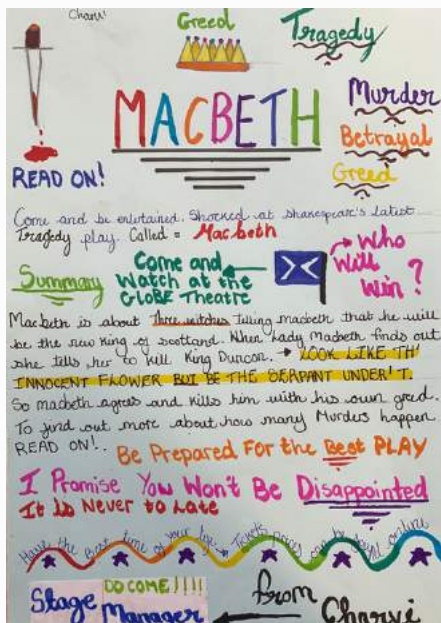 Charvi
Greed
Tragedy
MACBETH
Murder
Betrayal
Greed
READ ON!
Come and be entertained. Shocked at shakespeare's latest
Tragedy play. Called = Macbeth
Summary
Come and
Watch at the
GLOBE THEATRE
Who
Will
Win?
Macbeth is about Three witches Telling macbeth that he will
be the new King of scotland. When Lady Macbeth finds out
she tells her to kill King Duncan. → LOOK LIKE TH'
INNOCENT FLOWER BUT BE THE SERPANT UNDER'T.
So macbeth agrees and kills him with his own greed.
To find out more about how many Murders happen
READ ON!.
Be Prepared For the Best PLAY
I Promise You Won't Be Disappointed
It is Never to Late
Have the first time of your life → Tickets prices can be online
DO COME!!!!
Stage
Manager
from
Charvi